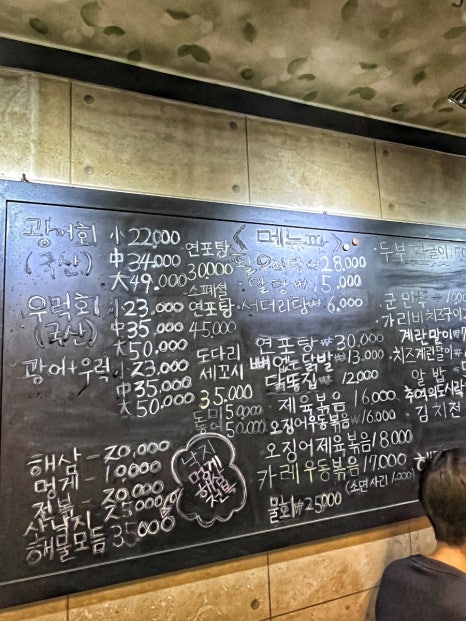 광어회 小 22,000
(국산) 中 34,000
大 49,000
우럭회 小 23,000
(국산) 中 35,000
大 50,000
광어+우럭 小 23,000
中 35,000
大 50,000
해삼 - 20,000
멍게 - 10,000
전복 20,000
산낙지 25,000
해물모듬 35,000
연포탕
30,000
스페셜
연포탕
45,000
도다리
세꼬시
35,000
도미 50,000
농어 50,000
낙지
멍게
해삼
전복
< 메뉴판 >
알탕 ₩ 15,000
서더리탕 ₩ 6,000
연포탕 ₩ 30,000
뼈없는닭발 ₩ 13,000
닭똥집 ₩ 12,000
제육볶음 16,000
오징어우동볶음 ₩ 16,000
오징어제육볶음 18,000
카레우동볶음 17,000
(소면사리 1,000)
물회 ₩ 25,000
군만두
가리비치즈구이
계란말이
치즈계란말이
알밥
추억의도시락
김치전